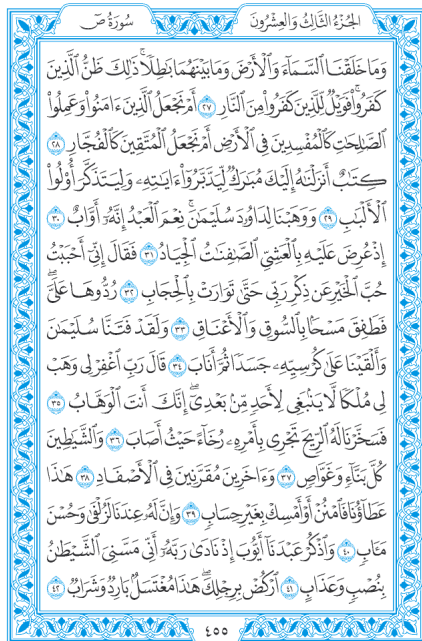 سُورَةُ صٓ
الجُزْءُ الثَّالِثُ وَالعِشْرُونَ
وَمَا خَلَقْنَا ٱلسَّمَآءَ وَٱلْأَرْضَ وَمَا بَيْنَهُمَا بَٰطِلًا ۚ ذَٰلِكَ ظَنُّ ٱلَّذِينَ
كَفَرُوا۟ ۚ فَوَيْلٌ لِّلَّذِينَ كَفَرُوا۟ مِنَ ٱلنَّارِ ٢٧ أَمْ نَجْعَلُ ٱلَّذِينَ ءَامَنُوا۟ وَعَمِلُوا۟
ٱلصَّٰلِحَٰتِ كَٱلْمُفْسِدِينَ فِى ٱلْأَرْضِ أَمْ نَجْعَلُ ٱلْمُتَّقِينَ كَٱلْفُجَّارِ ٢٨
كِتَٰبٌ أَنزَلْنَٰهُ إِلَيْكَ مُبَٰرَكٌ لِّيَدَّبَّرُوٓا۟ ءَايَٰتِهِۦ وَلِيَتَذَكَّرَ أُو۟لُوا۟
ٱلْأَلْبَٰبِ ٢٩ وَوَهَبْنَا لِدَاوُۥدَ سُلَيْمَٰنَ ۚ نِعْمَ ٱلْعَبْدُ ۖ إِنَّهُۥٓ أَوَّابٌ ٣٠
إِذْ عُرِضَ عَلَيْهِ بِٱلْعَشِىِّ ٱلصَّٰفِنَٰتُ ٱلْجِيَادُ ٣١ فَقَالَ إِنِّىٓ أَحْبَبْتُ
حُبَّ ٱلْخَيْرِ عَن ذِكْرِ رَبِّى حَتَّىٰ تَوَارَتْ بِٱلْحِجَابِ ٣٢ رُدُّوهَا عَلَىَّ ۖ
فَطَفِقَ مَسْحًۢا بِٱلسُّوقِ وَٱلْأَعْنَاقِ ٣٣ وَلَقَدْ فَتَنَّا سُلَيْمَٰنَ
وَأَلْقَيْنَا عَلَىٰ كُرْسِيِّهِۦ جَسَدًا ثُمَّ أَنَابَ ٣٤ قَالَ رَبِّ ٱغْفِرْ لِى وَهَبْ
لِى مُلْكًا لَّا يَنۢبَغِى لِأَحَدٍ مِّنۢ بَعْدِىٓ ۖ إِنَّكَ أَنتَ ٱلْوَهَّابُ ٣٥
فَسَخَّرْنَا لَهُ ٱلرِّيحَ تَجْرِى بِأَمْرِهِۦ رُخَآءً حَيْثُ أَصَابَ ٣٦ وَٱلشَّيَٰطِينَ
كُلَّ بَنَّآءٍ وَغَوَّاصٍ ٣٧ وَءَاخَرِينَ مُقَرَّنِينَ فِى ٱلْأَصْفَادِ ٣٨ هَٰذَا
عَطَآؤُنَا فَٱمْنُنْ أَوْ أَمْسِكْ بِغَيْرِ حِسَابٍ ٣٩ وَإِنَّ لَهُۥ عِندَنَا لَزُلْفَىٰ وَحُسْنَ
مَـَٔابٍ ٤٠ وَٱذْكُرْ عَبْدَنَآ أَيُّوبَ إِذْ نَادَىٰ رَبَّهُۥٓ أَنِّى مَسَّنِىَ ٱلشَّيْطَٰنُ
بِنُصْبٍ وَعَذَابٍ ٤١ ٱرْكُضْ بِرِجْلِكَ ۖ هَٰذَا مُغْتَسَلٌۢ بَارِدٌ وَشَرَابٌ ٤٢
٤٥٥